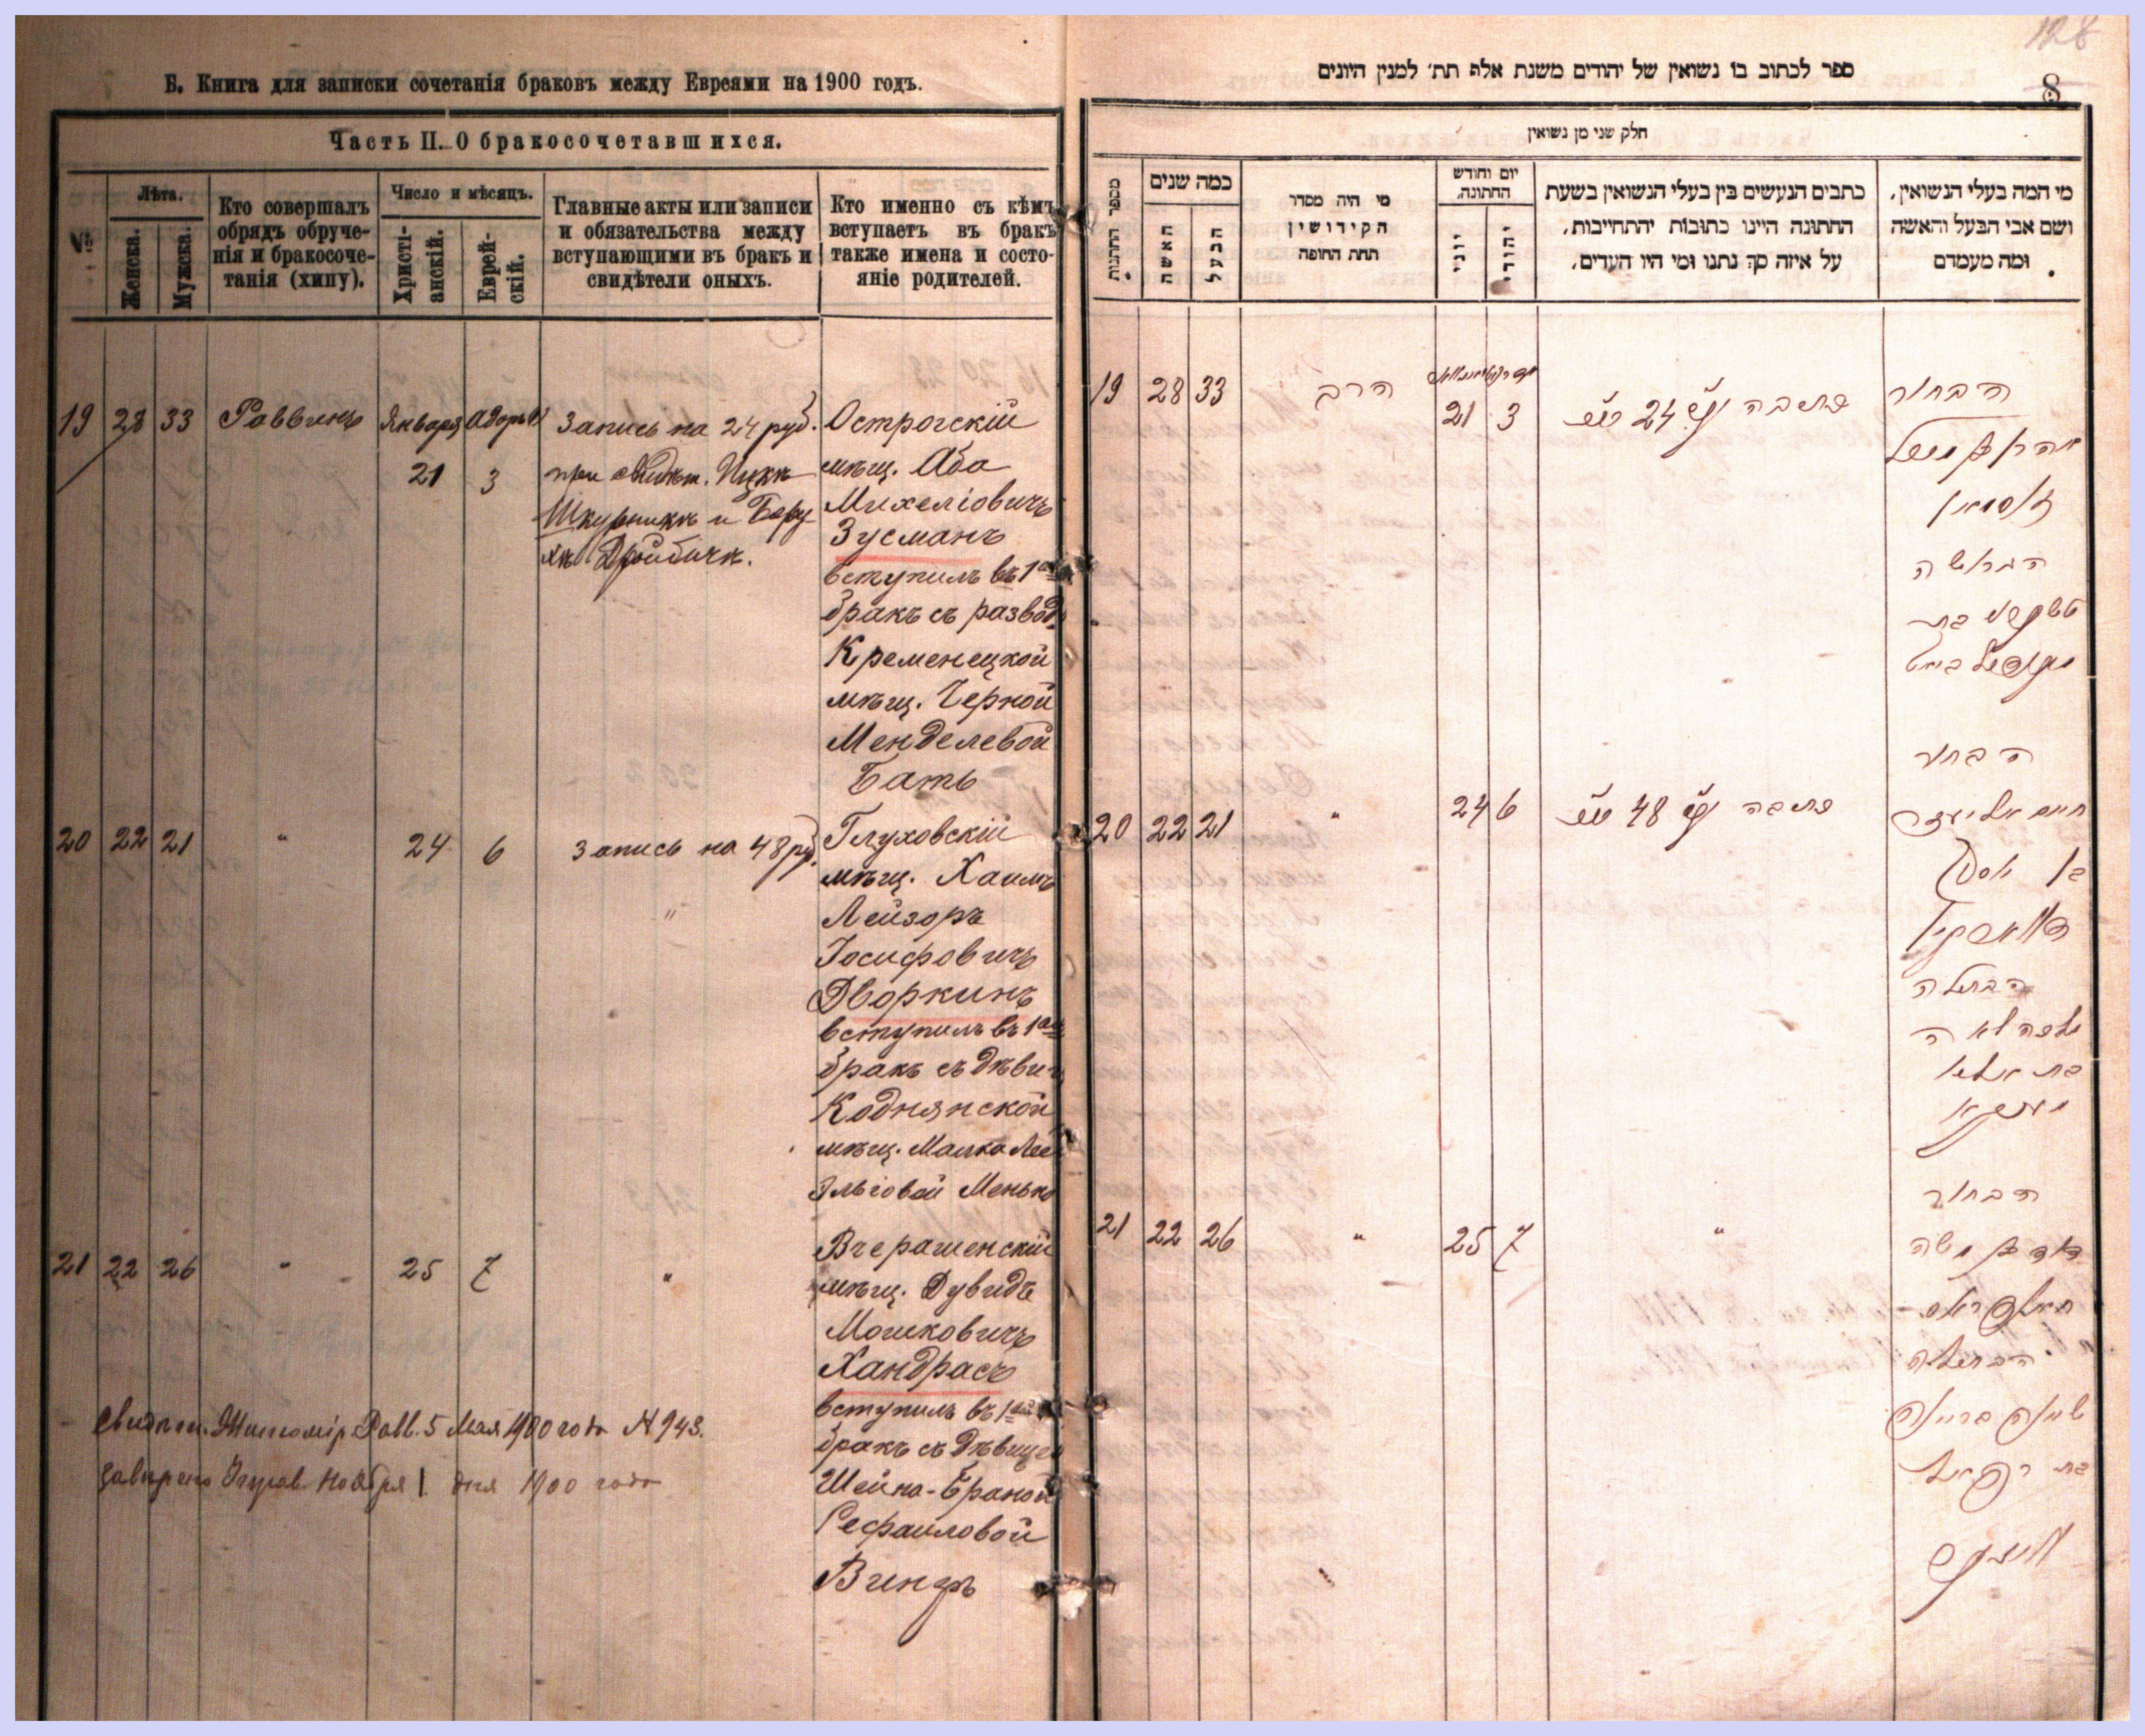 128
Б. Книга для записки сочетанія браковъ между Евреями на 1900 годъ.
Часть II. О бракосочетавшихся.
№
Лѣта.
Женска.
Мужска.
Кто совершалъ
обрядъ обруче-
нія и бракосоче-
танія (хипу).
Число и мѣсяцъ.
Христі-
анскій.
Еврей-
скій.
Главные акты или записи
и обязательства между
вступающими въ бракъ и
свидѣтели оныхъ.
Кто именно съ кѣмъ
вступаетъ въ бракъ
также имена и состо-
яніе родителей.
19 28 33 Раввинъ Января 21 3
Запись на 24 руб.
при свидѣт. Ицкѣ
Шкурникѣ и Бору-
хѣ
Острогскій
мѣщ. Аба
Михеліовичъ
Зусманъ
вступилъ въ 1ый
бракъ съ развод.
Кременецкой
мѣщ. Черной
Менделевой
Батъ
20 22 21 " 24 6
Запись на 48 руб.
"
Глуховскій
мѣщ. Хаимъ
Лейзоръ
Іосифовичъ
Дворкинъ
вступилъ въ 1ый
бракъ съ дѣвиц
Коднянской
мѣщ. Малка Лея
Эльіовой Менько
21 22 26 " 25 7 "
Вчерашенскій
мѣщ. Дувидъ
Мошковичъ
Хандрасъ
вступилъ въ 1ый
бракъ съ дѣвицей
Шейна-Браной
Рефаиловой
Свидѣт. Житомір. Равв. 5 Мая 1900 года № 943.
Ноября 1 дня 1900 года
ספר לכתוב בו נשואין של יהודים משנת אלף תת׳ למנין היונים
8
חלק שני מן נשואין
מספר החתונות
כמה שנים
האשה
הבעל
מי היה מסדר
הקידושין
תחת החופה
יום וחודש
החתונה.
יוני
יהודי
כתבים הנעשים בין בעלי הנשואין בשעת
החתונה היינו כתובות והתחייבות,
על איזה סך נתנו ומי היו העדים,
מי המה בעלי הנשואין,
ושם אבי הבעל והאשה
ומה מעמדם
19 28 33 הרב 21 3
כתובה 24
הבחור
זוסמאן
הגרושה
20 22 21 " 24 6
כתובה 48
הבחור
חיים אליעזר
בן יוסף
דווארקין
הבתולה
מלכה לאה
בת אליא
21 22 26 " 25 7 "
הבחור
דוד בן משה
כאנדראס
הבתולה
שיינה בריינה
בת רפאל